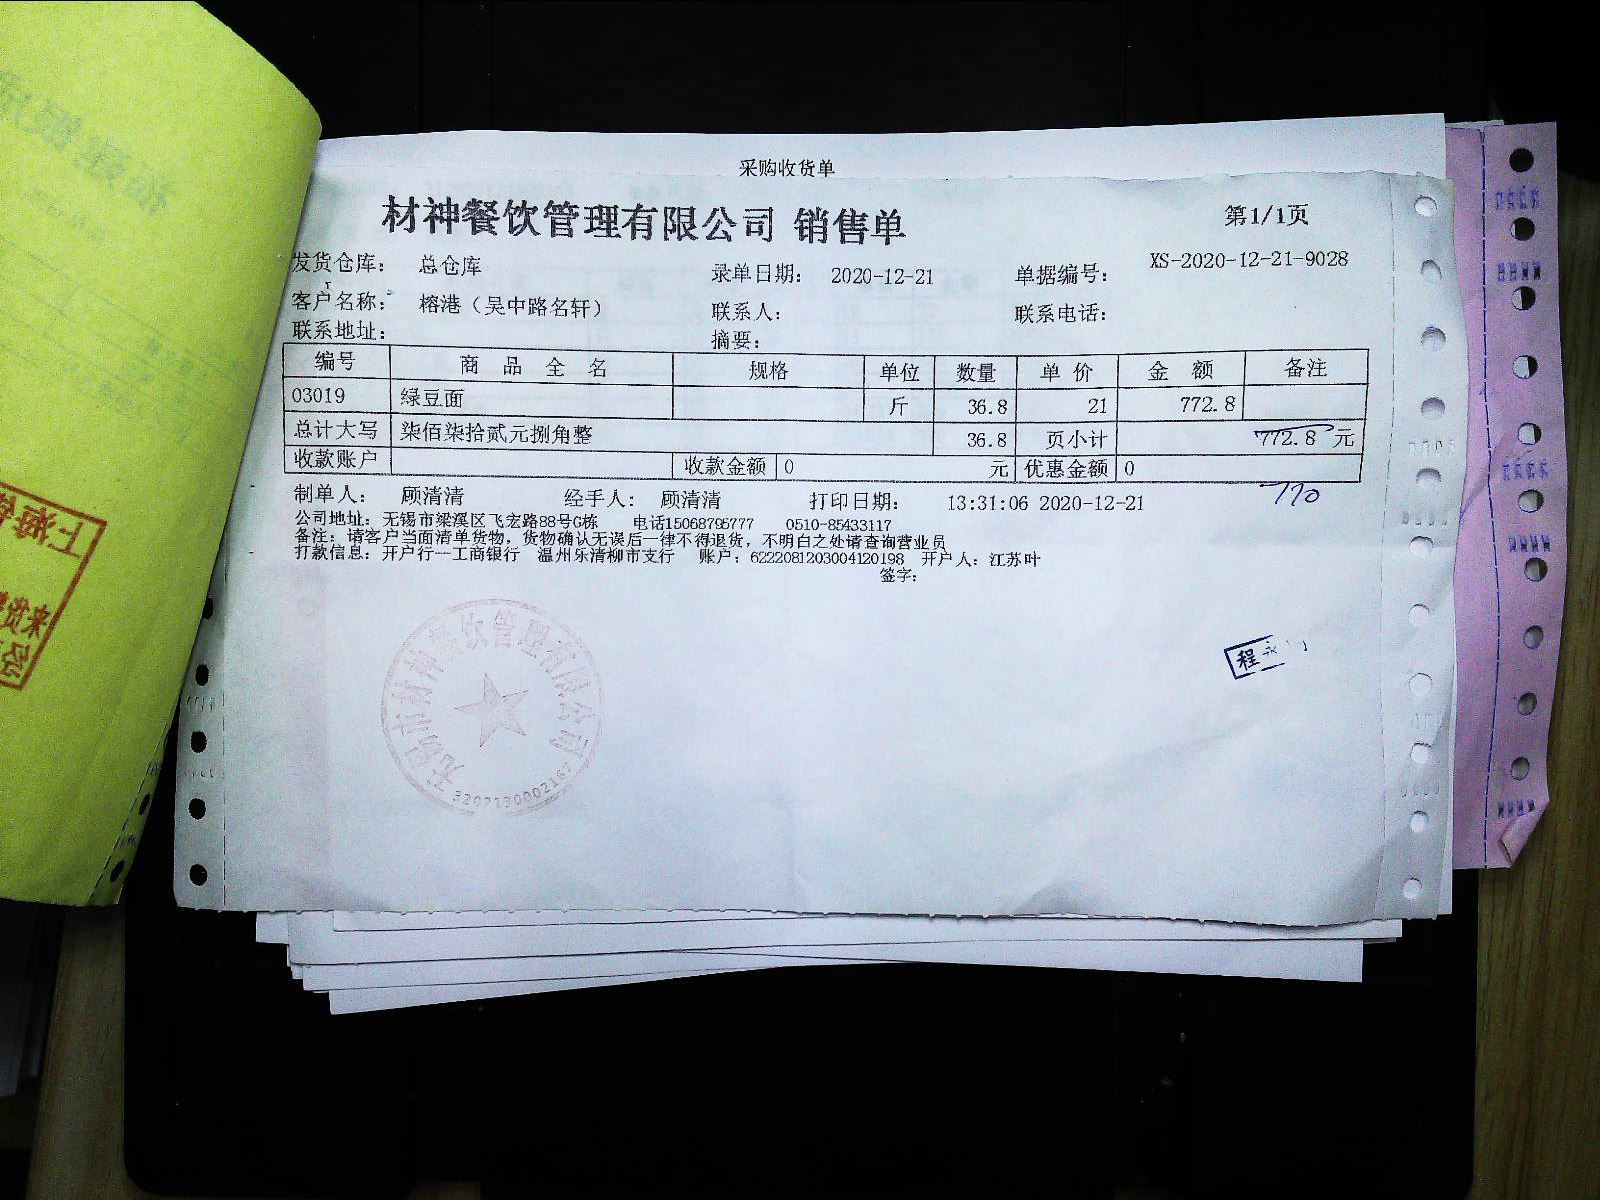 采购收货单
材神餐饮管理有限公司 销售单 第1/1页
发货仓库: 总仓库 录单日期: 2020-12-21 单据编号: XS-2020-12-21-9028
客户名称: 榕港（吴中路名轩） 联系人: 联系电话:
联系地址: 摘要:
编号 商品全名 规格 单位 数量 单价 金额 备注
03019 绿豆面 斤 36.8 21 772.8
总计大写 柒佰柒拾贰元捌角整 36.8 页小计 772.8 元
收款账户 收款金额 0 元 优惠金额 0
770
制单人: 顾清清 经手人: 顾清清 打印日期: 13:31:06 2020-12-21
公司地址: 无锡市梁溪区飞宏路88号G栋 电话15068795777 0510-85433117
备注: 请客户当面清单货物, 货物确认无误后一律不得退货, 不明白之处请查询营业员
打款信息: 开户行--工商银行 温州乐清柳市支行 账户: 6222081203004120198 开户人: 江苏叶
签字:
无锡市材神餐饮管理有限公司
3207130002167
程